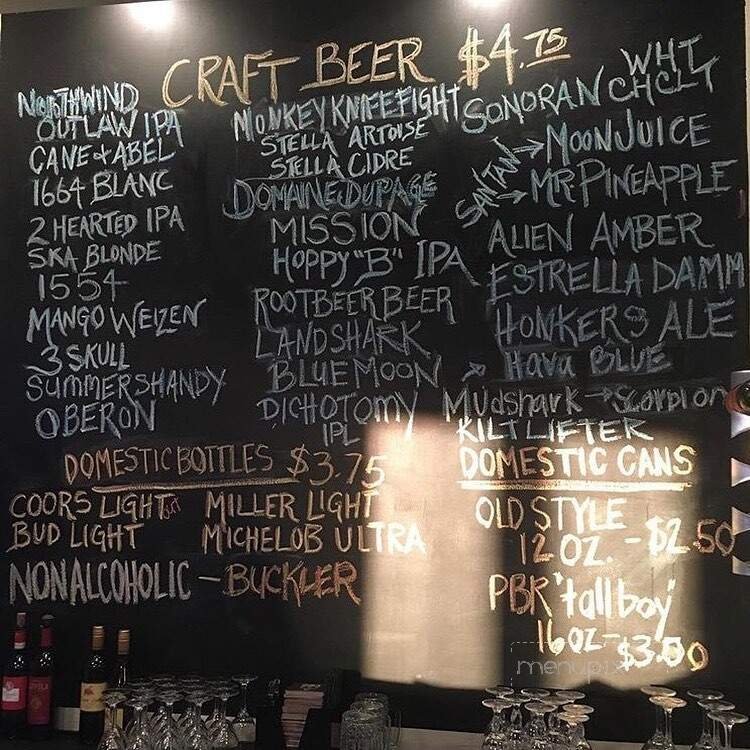 CRAFT BEER $4.75
NORTHWIND
OUTLAW IPA
CANE & ABEL
1664 BLANC
2 HEARTED IPA
SKA BLONDE
1554
MANGO WEIZEN
3 SKULL
SUMMERSHANDY
OBERON
MONKEY KNIFEFIGHT
STELLA ARTOISE
STELLA CIDRE
DOMAINE DUPAGE
MISSION
HOPPY "B" IPA
ROOTBEER BEER
LANDSHARK
BLUE MOON
DICHOTOMY
IPL
WHT
SONORAN CHCLT
SANTAN → MOONJUICE
→ MR PINEAPPLE
ALIEN AMBER
ESTRELLA DAMM
HONKERS ALE
Hava BLUE
Mudshark → Scorpion
KILTLIFTER
DOMESTIC BOTTLES $3.75
COORS LIGHT
BUD LIGHT
MILLER LIGHT
MICHELOB ULTRA
NONALCOHOLIC – BUCKLER
DOMESTIC CANS
OLD STYLE
12 OZ. - $2.50
PBR "tall boy"
16 OZ - $3.00
menupix